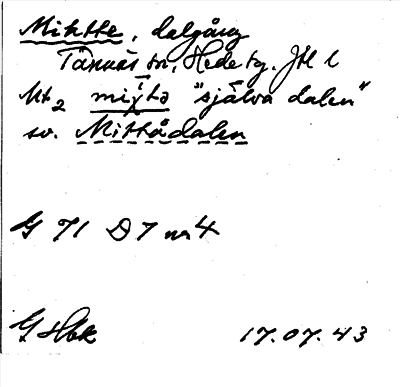 Mihtte, dalgång
Tännäs sn, Hede tg. Jtl l
Ut₂ mixtə "själva dalen"
sv. Mittådalen
G 71 D 7 nr 4
17.07.43